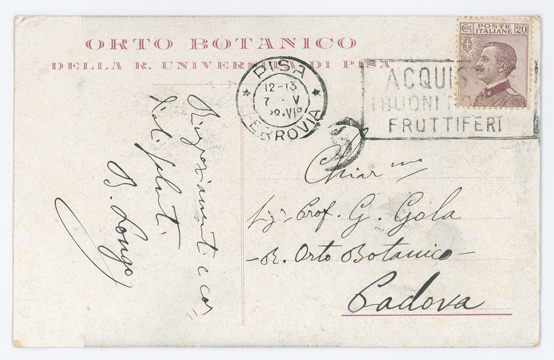 ORTO BOTANICO
DELLA R. UNIVERSITÀ DI PISA
POSTE ITALIANE
Cent 20
PISA
12-13
7 V
28.VI°
FERROVIA
ACQUIS
I BUONI
FRUTTIFERI
Ringraziamenti e cor=
diali saluti.
B. Longo
Chiar mo
Sig. Prof. G. Gola
- R. Orto Botanico -
Padova